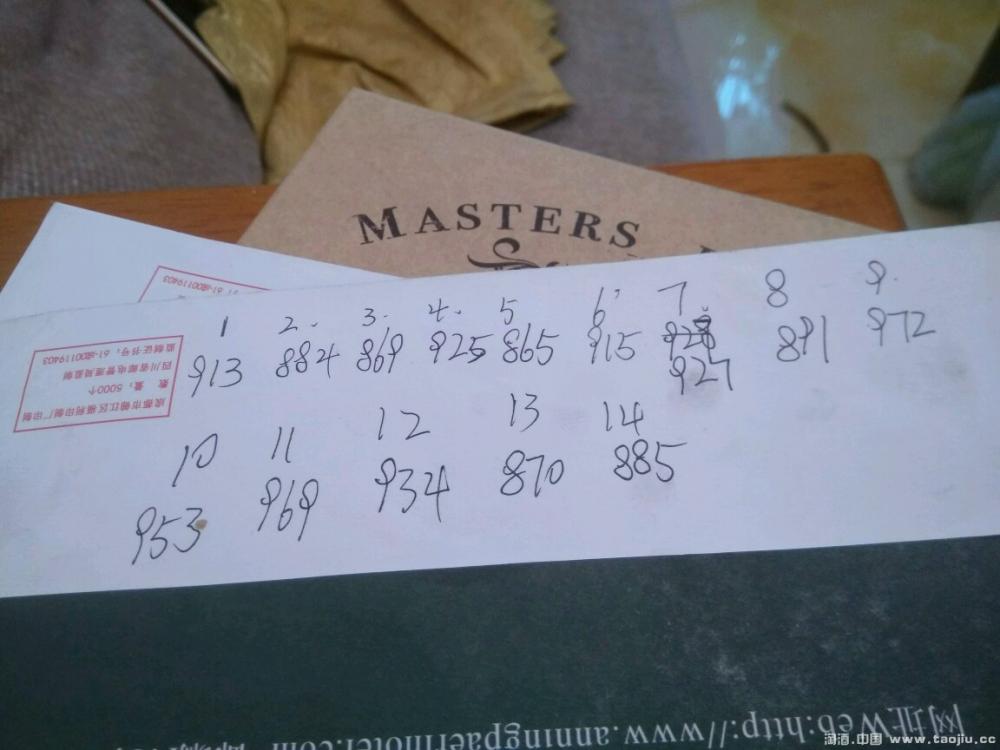 MASTERS
1 2. 3. 4. 5 6' 7 8 9.
913 884 869 925 865 915 927 891 972
10 11 12 13 14
953 969 934 870 885
成都市锦江区福利印制厂印制
数 量：5000个
四川省邮电管理局监制
监制证书号：61-JB00119403
网址Web:http://www.anningpaermotel.com
淘酒.中国 www.taojiu.cc